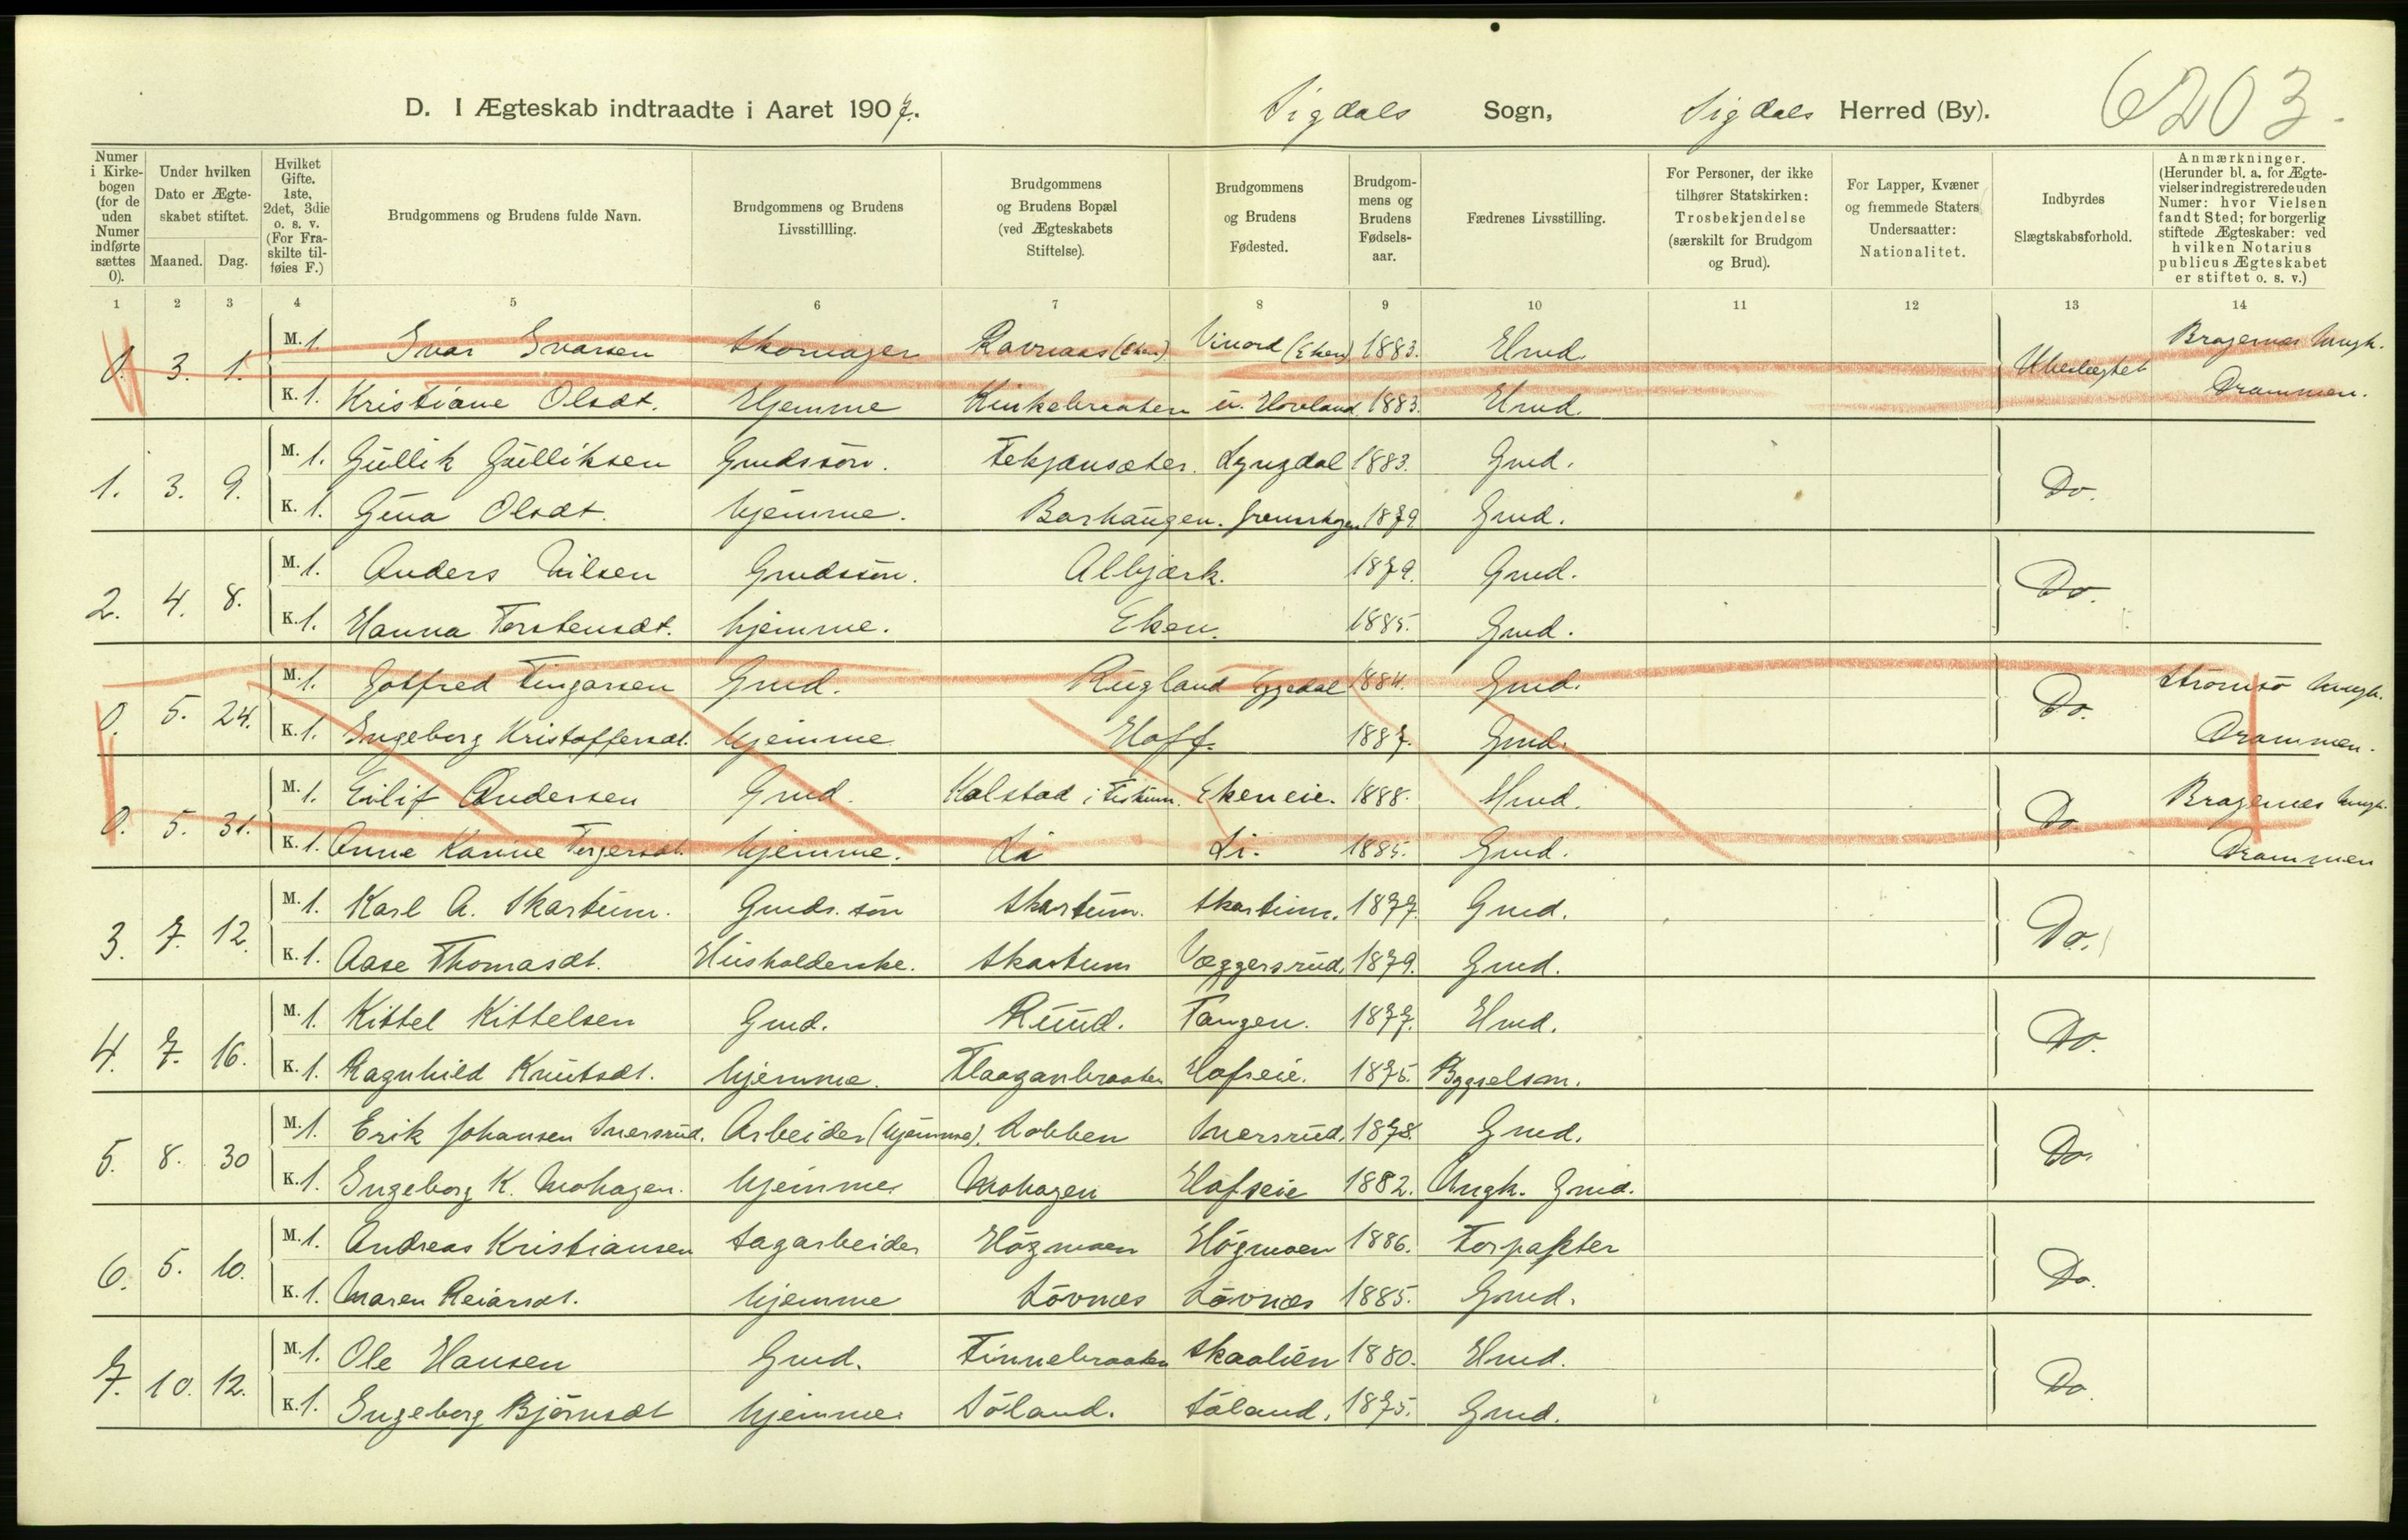 D. I Ægteskab indtraadte i Aaret 1907. Sigdals Sogn, Sigdals Herred (By). 6203.
Numer i Kirkebogen (for de uden Numer indførte sættes 0).
Under hvilken Dato er Ægteskabet stiftet.
Maaned. Dag.
Hvilket Gifte. 1ste, 2det, 3die o. s. v. (For Fraskilte tilføies F.)
Brudgommens og Brudens fulde Navn.
Brudgommens og Brudens Livsstillling.
Brudgommens og Brudens Bopæl (ved Ægteskabets Stiftelse).
Brudgommens og Brudens Fødested.
Brudgommens og Brudens Fødselsaar.
Fædrenes Livsstilling.
For Personer, der ikke tilhører Statskirken: Trosbekjendelse (særskilt for Brudgom og Brud).
For Lapper, Kvæner og fremmede Staters Undersaatter: Nationalitet.
Indbyrdes Slægtskabsforhold.
Anmærkninger. (Herunder bl. a. for Ægtevielser indregistrerede uden Numer: hvor Vielsen fandt Sted; for borgerlig stiftede Ægteskaber: ved hvilken Notarius publicus Ægteskabet er stiftet o. s. v.)
1 2 3 4 5 6 7 8 9 10 11 12 13 14
0. 3. 1. M. 1. Ivar Ivarsen Skomager Ravnaas (Eken) (Eken) 1883. Hmd. Ubeslægtet Bragernes Drammen.
K. 1. Kristiane Olsdt. Hjemme Kinkebraaten u. Hovland. 1883. Hmd.
1. 3. 9. M. 1. Gullik Gulliksen Gmdssøn. Tekjansæter. Lyngdal 1883. Gmd. Do.
K. 1. Gina Olsdt. hjemme. Barhaugen. 1879 Gmd.
2. 4. 8. M. 1. Anders Nilsen Gmdssøn. Albjærk. 1879. Gmd. Do.
K. 1. Hanna Torstensdt. hjemme. Eken. 1885. Gmd.
0. 5. 24. M. 1. Gotfred Gmd. Rugland Eggedal 1884. Gmd. Do. Strømsø Drammen.
K. 1. Ingeborg Kristoffersdt. hjemme Hoff. 1887. Gmd.
0. 5. 31. M. 1. Eilif Andersen Gmd. Kolstad i Fiskum. Eken eie. 1888. Hmd. Do Bragernes Drammen
K. 1. Anne Karine Torgersdt. hjemme. Li Li. 1885. Gmd.
3. 7. 12. M. 1. Karl A. Skartum. Gmds. søn Skartum. Skartum. 1877. Gmd. Do.
K. 1. Aase Thomasdt. Husholderske. Skartum Væggersrud. 1879. Gmd.
4. 7. 16. M. 1. Kittel Kittelsen Gmd. Ruud. Tangen. 1877. Hmd. Do.
K. 1. Ragnhild Knutsdt. hjemme. Flaaganbraaten Hofseie. 1875. Bygselsm.
5. 8. 30 M. 1. Erik Johansen Snersrud. Arbeider (hjemme). Kobben Snersrud. 1878. Gmd. Do.
K. 1. Ingeborg K. Mohagen. hjemme Mohagen Hofseie 1882. Ungk. Gmd.
6. 5. 10. M. 1. Andreas Kristiansen Sagarbeider Høgmoen Høgmoen 1886. Forpakter Do.
K. 1. Maren Reiarsdt. hjemme Løvnes Løvnes 1885. Gmd.
7. 10. 12. M. 1. Ole Hansen Gmd. Finnebraaten Skaalien 1880. Hmd. Do.
K. 1. Ingeborg Bjørnsdt hjemme Søland. Søland. 1875. Gmd.